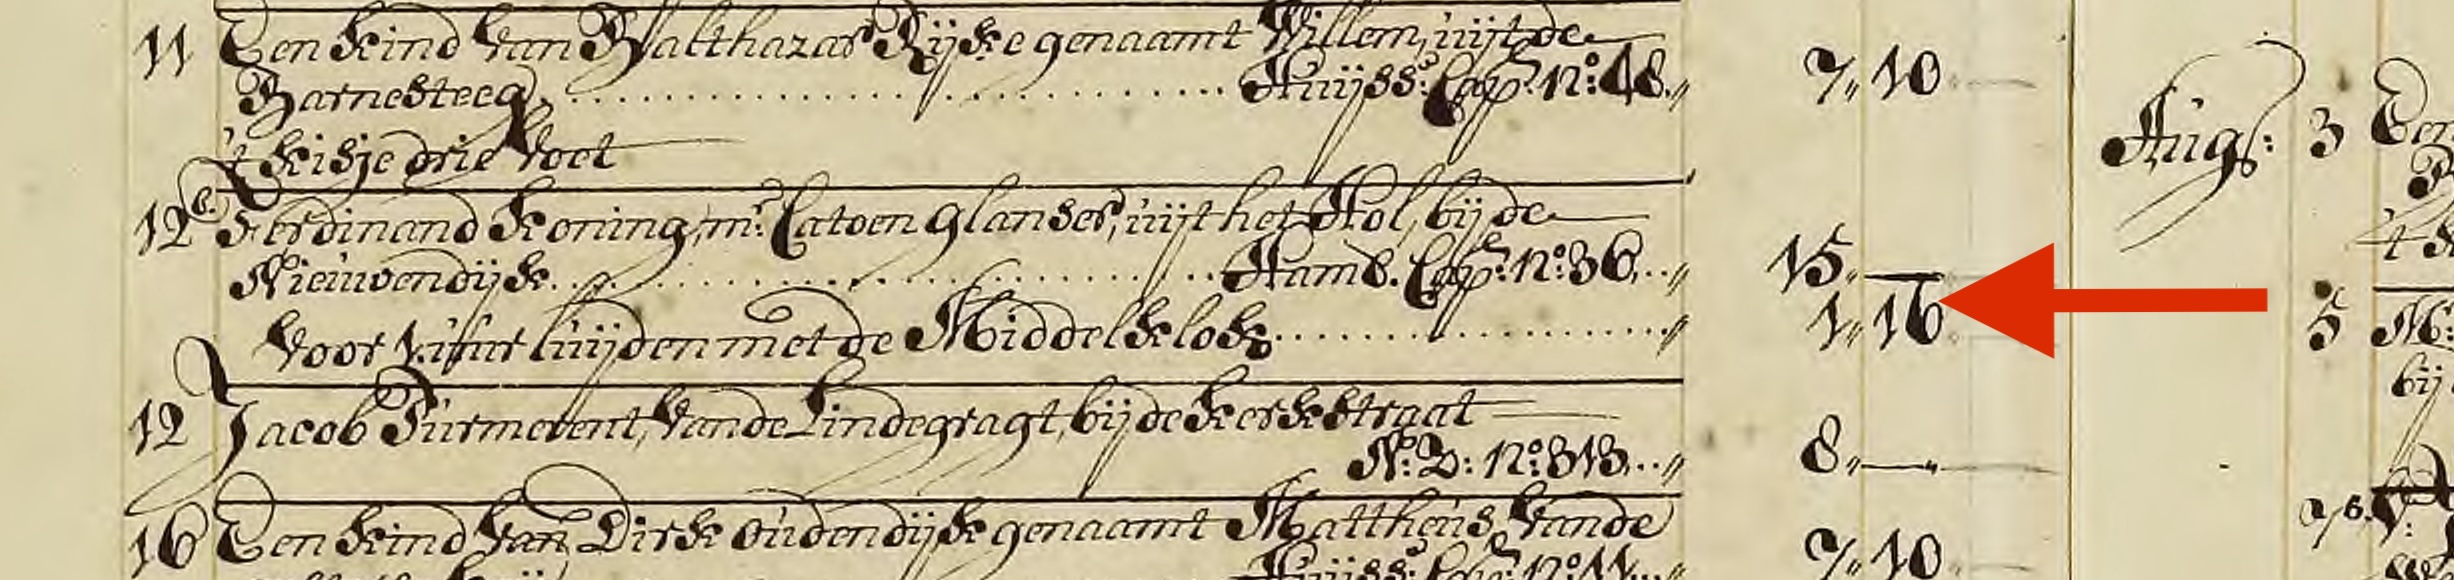 11 Een kind van Balthazar Rijke genaamt Willem, uijt de
Barnesteeg, .......... Huijss: Cap: n:o 48. „ 7„ 10
't kisje drie voet
12 b. Ferdinand Koning, m:r Catoen glanser, uijt het Hol, bij de
Nieuwendijk .......... Hamb. Cap: n:o 36, .. „ 15„ —
Voor 1. uur luijden met de Middelklok .......... „ 1„ 16
12 Jacob Purmerent, vande Lindegragt, bij de Kerkstraat
N: Z: n:o 313 ... „ 8„ — „
16 Een kind van Dirk Oudendijk genaamt Mattheus, vande
Huijss: Cap: n:o 7„ 10
Augs: 3 Een
't
5 M:
bij